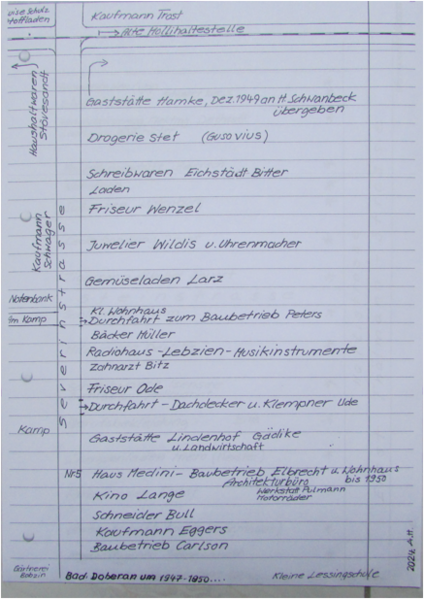 Kaufmann Trost
Alte Mollihaltestelle
Haushaltwaren
Stövesandt
Gaststätte Hamke, Dez. 1949 an H. Schwanbeck
übergeben
Drogerie Stet (Gusovius)
Schreibwaren Eichstädt Bitter
Laden
Friseur Wenzel
Kaufmann
Schwager
Juwelier Wildis u. Uhrenmacher
Gemüseladen Larz
Severinstrasse
Notenbank
Kl. Wohnhaus
Im Kamp
Durchfahrt zum Baubetrieb Peters
Bäcker Müller
Radiohaus - Lebzien - Musikinstrumente
Zahnarzt Bitz
Friseur Ode
Durchfahrt - Dachdecker u. Klempner Ude
Kamp
Gaststätte Lindenhof Gädike
u. Landwirtschaft
Nr 5 Haus Medini - Baubetrieb Elbrecht u. Wohnhaus
Architekturbüro bis 1950
Kino Lange Werkstatt Pulmann
Motorräder
Schneider Bull
Kaufmann Eggers
Baubetrieb Carlson
Gärtnerei
Bad-Doberan um 1947-1950.... Kleine Lessingschule